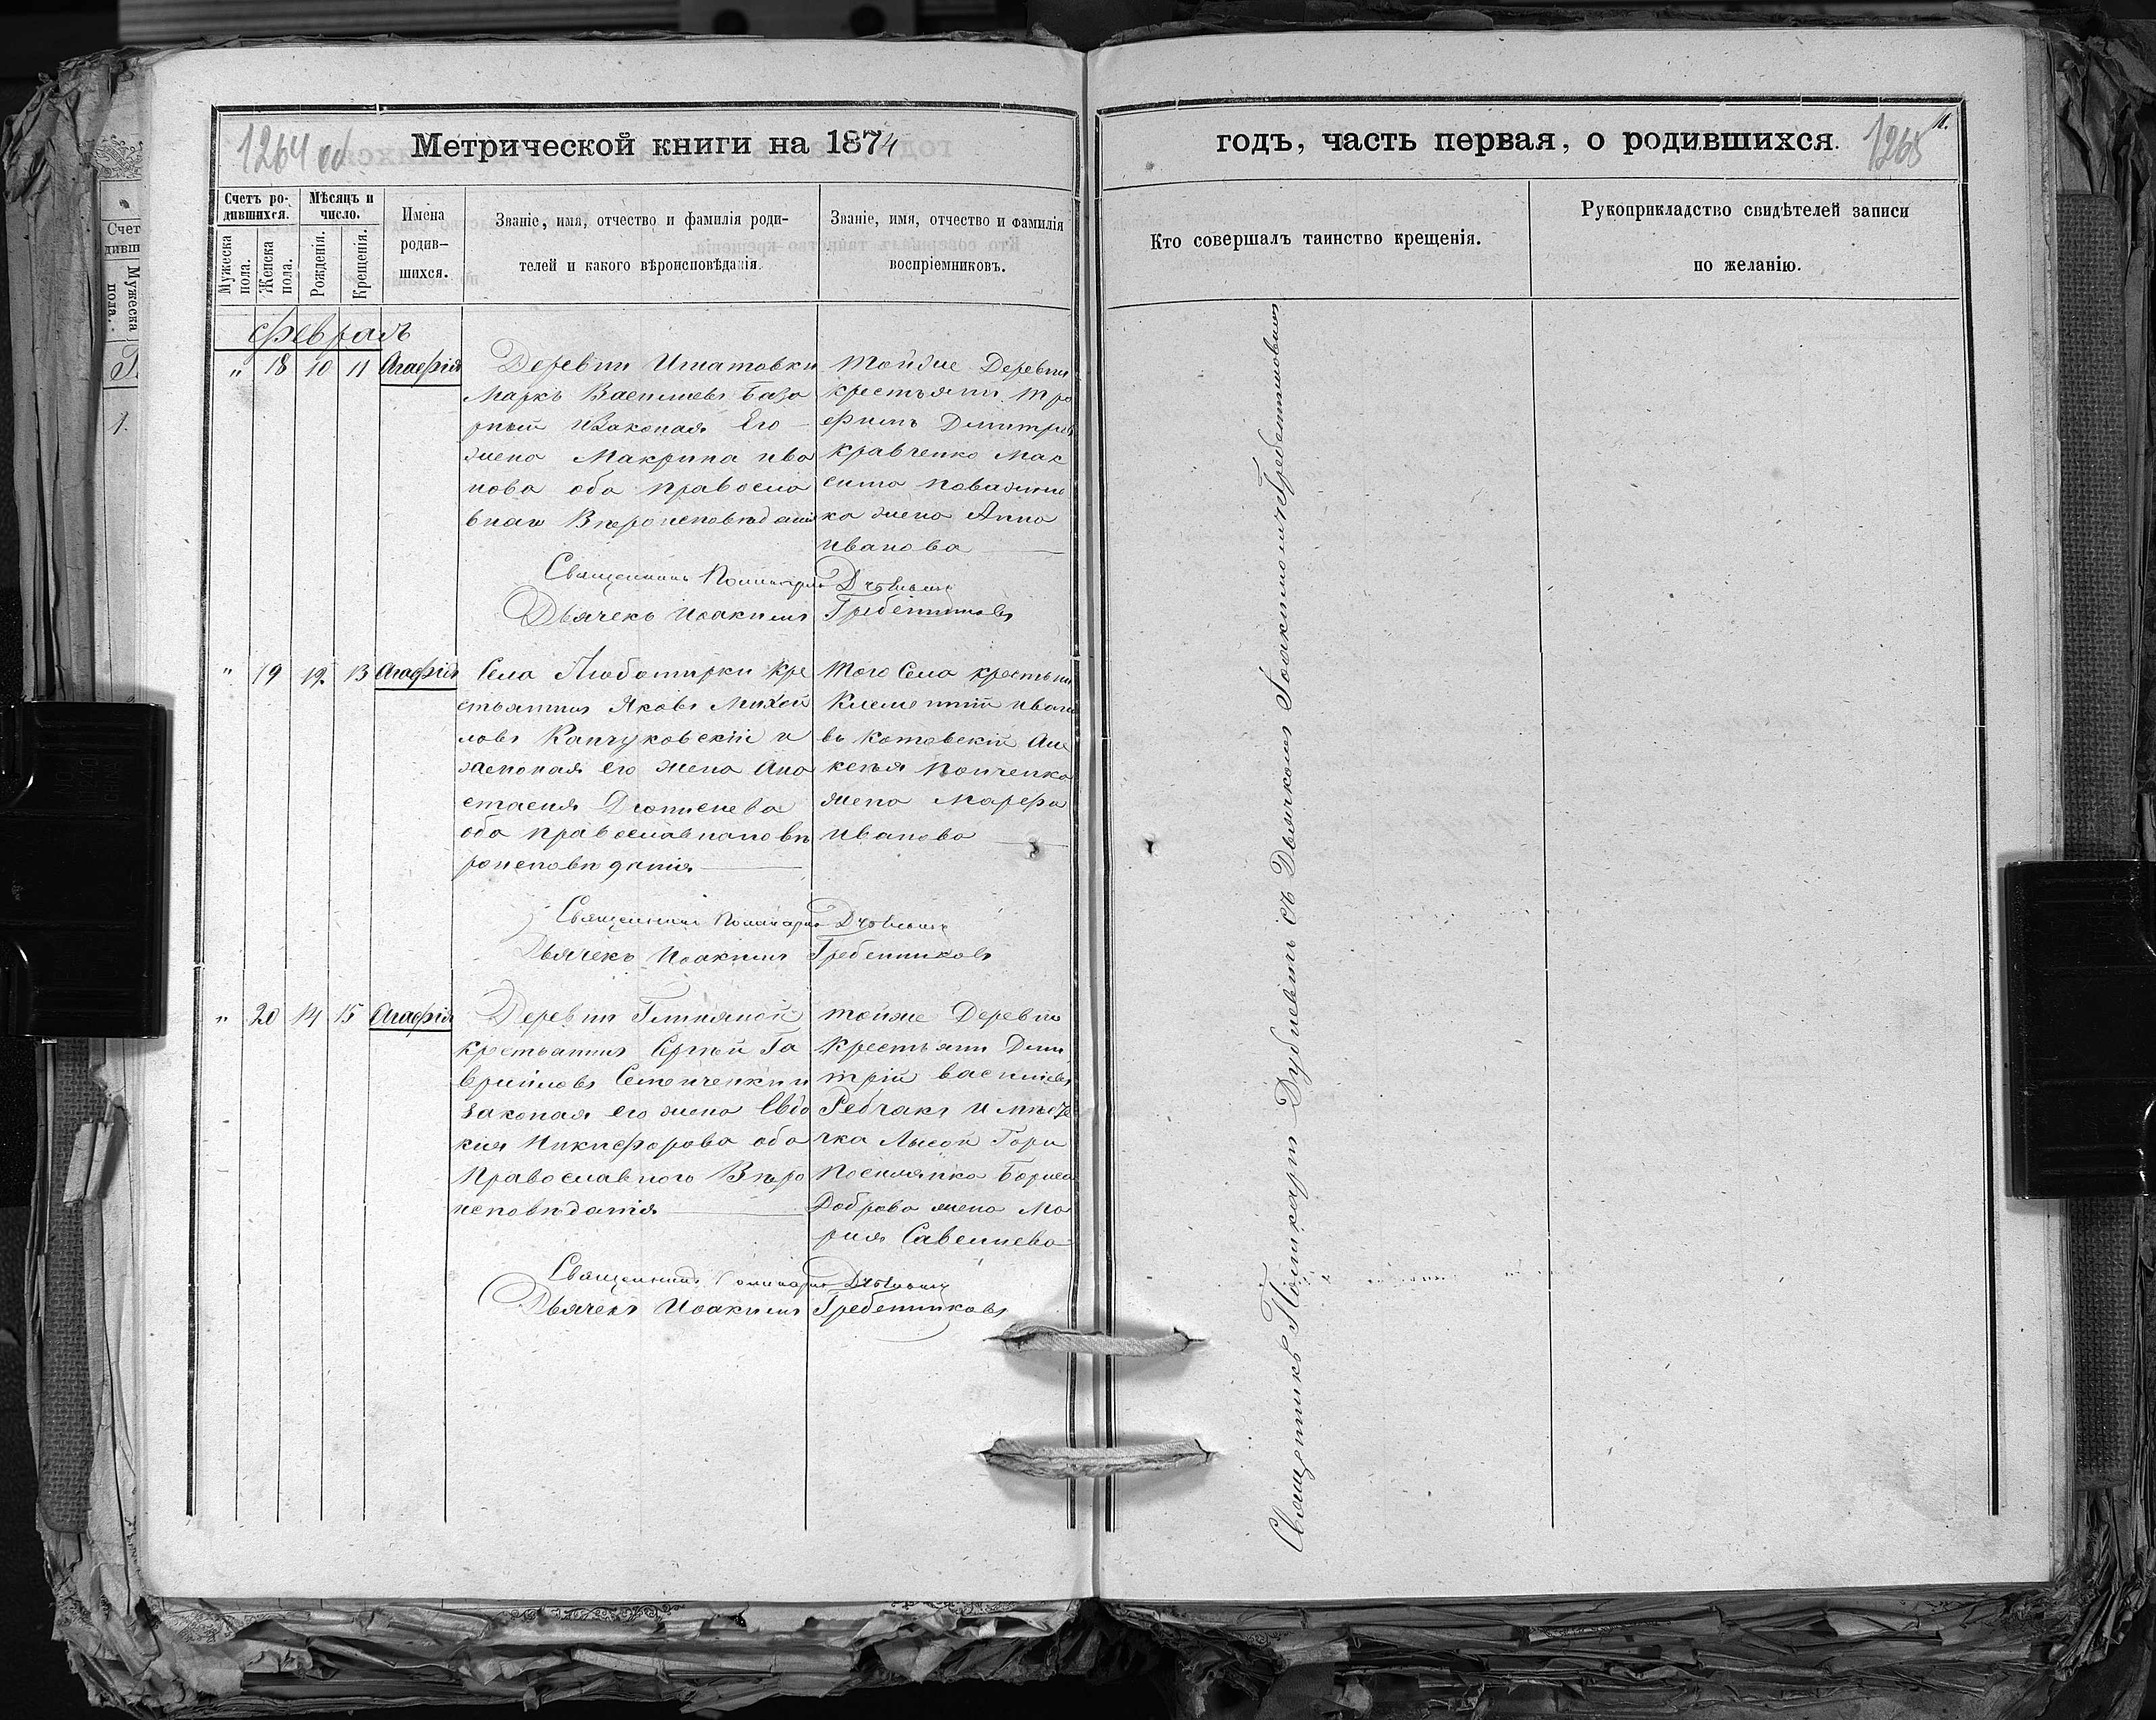 1264 об
Метрической книги на 1874
Счетъ ро-
дившихся.
Мѣсяцъ и
число.
Мужеска
пола.
Женска
пола.
Рожденія.
Крещенія.
Имена
родив-
шихся.
Званіе, имя, отчество и фамилія роди-
телей и какого вѣроисповѣданія.
Званіе, имя, отчество и фамилія
воспріемниковъ.
Февраль
" 18 10 11 Агафія
Деревни Игнатовки
Маркъ Васильевъ База
рный Законая Его
жена Макрина ива
нова оба православ
Вѣроисповѣданія
Тойже Деревни
крестьянин Тро
фимъ Димитріев
Кравченко Мак
сима
ка жена Анна
Иванова
Священникъ Поликарпъ Дубневичъ
Дьячекъ Иоакимъ Гребенниковъ
" 19 12 13 Агафія
Села Любомирки Кре
стьянинъ Яковъ Михай
ловъ Капчуковскій и
законая его жена Ана
стасия Дионисиева
оба православнаго вѣ
роисповѣданія
Того Села крестьянин
Климентий Ивано
въ Котовский Але
ксѣя
жена Марфа
Иванова
Священникъ Поликарпъ Дубневичъ
Дьячекъ Иоакимъ Гребенниковъ
" 20 14 15 Агафія
Деревни Глиняной
крестьянинъ Сергѣй Га
вриловъ Семенченко и
Законая его жена Евдо
кия Никифорова оба
Православного Вѣро
исповѣданія
тойже Деревни
Крестьянин Дми
трій Васильевъ
Рябчакъ и мѣсте
чка Лысой Гори
Поселянка Бориса
Доброва жена Ма
рия Савельева
Священникъ Поликарпъ Дубневичъ
Дьячекъ Иоакимъ Гребенниковъ
годъ, часть первая, о родившихся.
1265
11.
Кто совершалъ таинство крещенія.
Рукоприкладство свидѣтелей записи
по желанію.
Священникъ Поликарпъ Дубневичъ съ Дьячкомъ Іоакимомъ Гребенниковымъ
Счет
дивш
Мужеска
пола.
1.